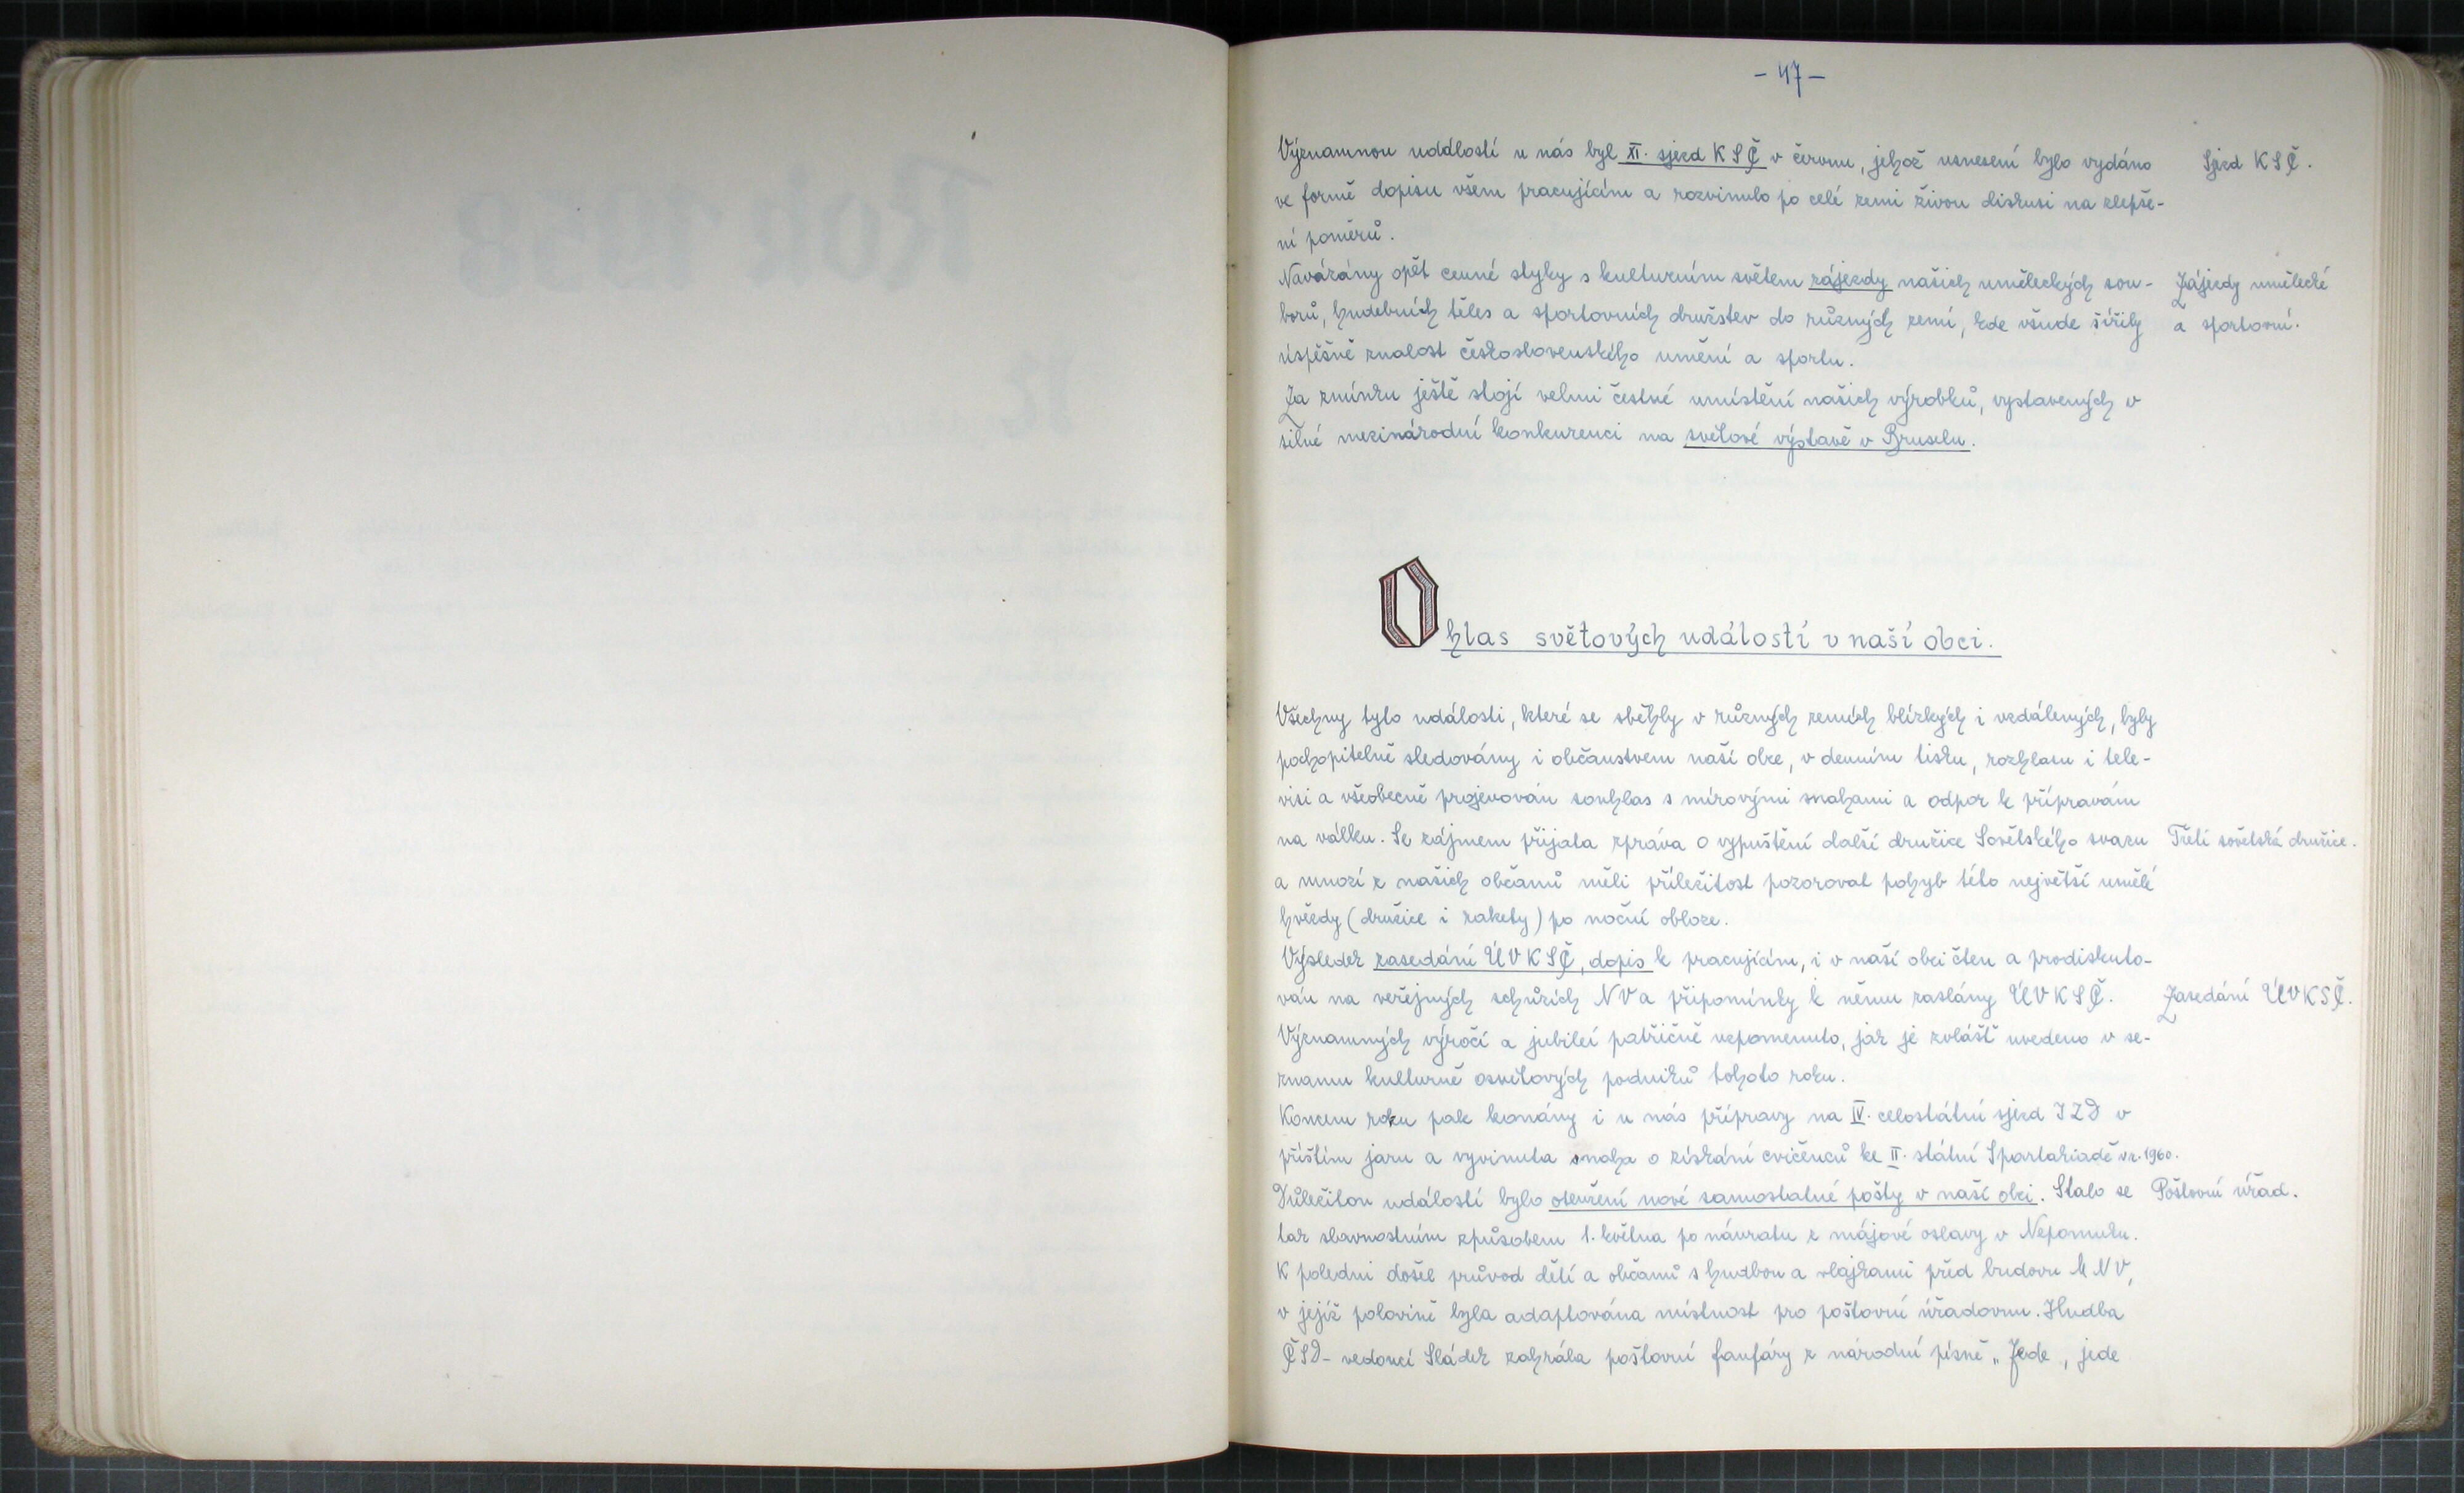 - 47 -
Významnou událostí u nás byl XI. sjezd KSČ v červnu, jehož usnesení bylo vydáno Sjezd KSČ.
ve formě dopisu všem pracujícím a rozvinulo po celé zemi živou diskusi na zlepše-
ní poměrů.
Navázány opět cenné styky s kulturním světem zájezdy našich uměleckých sou- Zájezdy umělecké
borů, hudebních těles a sportovních družstev do různých zemí, kde všude šířily a sportovní.
úspěšně znalost československého umění a sportu.
Za zmínku ještě stojí velmi čestné umístění našich výrobků, vystavených v
silné mezinárodní konkurenci na světové výstavě v Bruselu.
Ohlas světových událostí v naší obci.
Všechny tyto události, které se sběhly v různých zemích blízkých i vzdálených, byly
pochopitelně sledovány i občanstvem naší obce, v denním tisku, rozhlasu i tele-
visi a všeobecně projevován souhlas s mírovými snahami a odpor k přípravám
na válku. Se zájmem přijata zpráva o vypuštění další družice Sovětského svazu Třetí sovětská družice.
a mnozí z našich občanů měli příležitost pozorovat pohyb této největší umělé
hvězdy (družice i rakety) po noční obloze.
Výsledek zasedání ÚV KSČ, dopis k pracujícím, i v naší obci čten a prodiskuto-
ván na veřejných schůzích NV a připomínky k němu zaslány ÚV KSČ. Zasedání ÚV KSČ.
Významných výročí a jubileí patřičně vzpomenuto, jak je zvlášť uvedeno v se-
znamu kulturně osvětových podniků tohoto roku.
Koncem roku pak konány i u nás přípravy na IV. celostátní sjezd JZD v
příštím jaru a vyvinuta snaha o získání cvičenců ke II. státní Spartakiadě v r. 1960.
Důležitou událostí bylo otevření nové samostatné pošty v naší obci. Stalo se Poštovní úřad.
tak slavnostním způsobem 1. května po návratu z májové oslavy v Nepomuku.
K poledni došel průvod dětí a občanů s hudbou a vlajkami před budovu MNV,
v jejíž polovině byla adaptována místnost pro poštovní úřadovnu. Hudba
ČSD - vedoucí Sládek zahrála poštovní fanfáry z národní písně „Jede, jede